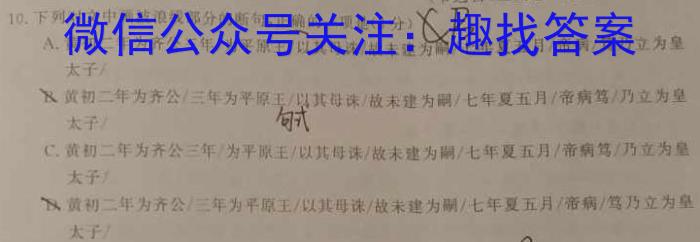 10.下列
微信公众号关注：趣找答案
A.
未建为嗣/七年夏五月/帝病笃乃立为皇
太子/
B.黄初二年为齐公/三年为平原王/以其母诛/故未建为嗣/七年夏五月/帝病笃/乃立为皇
太子/
句式
C.黄初二年为齐公三年/为平原王/以其母诛/故未建为嗣/七年夏五月/帝病笃/乃立为皇
太子/
D.黄初二年为齐公/三年为平原王/以其母诛/故未建为嗣/七年夏五月/帝病/笃乃立为皇
太子/